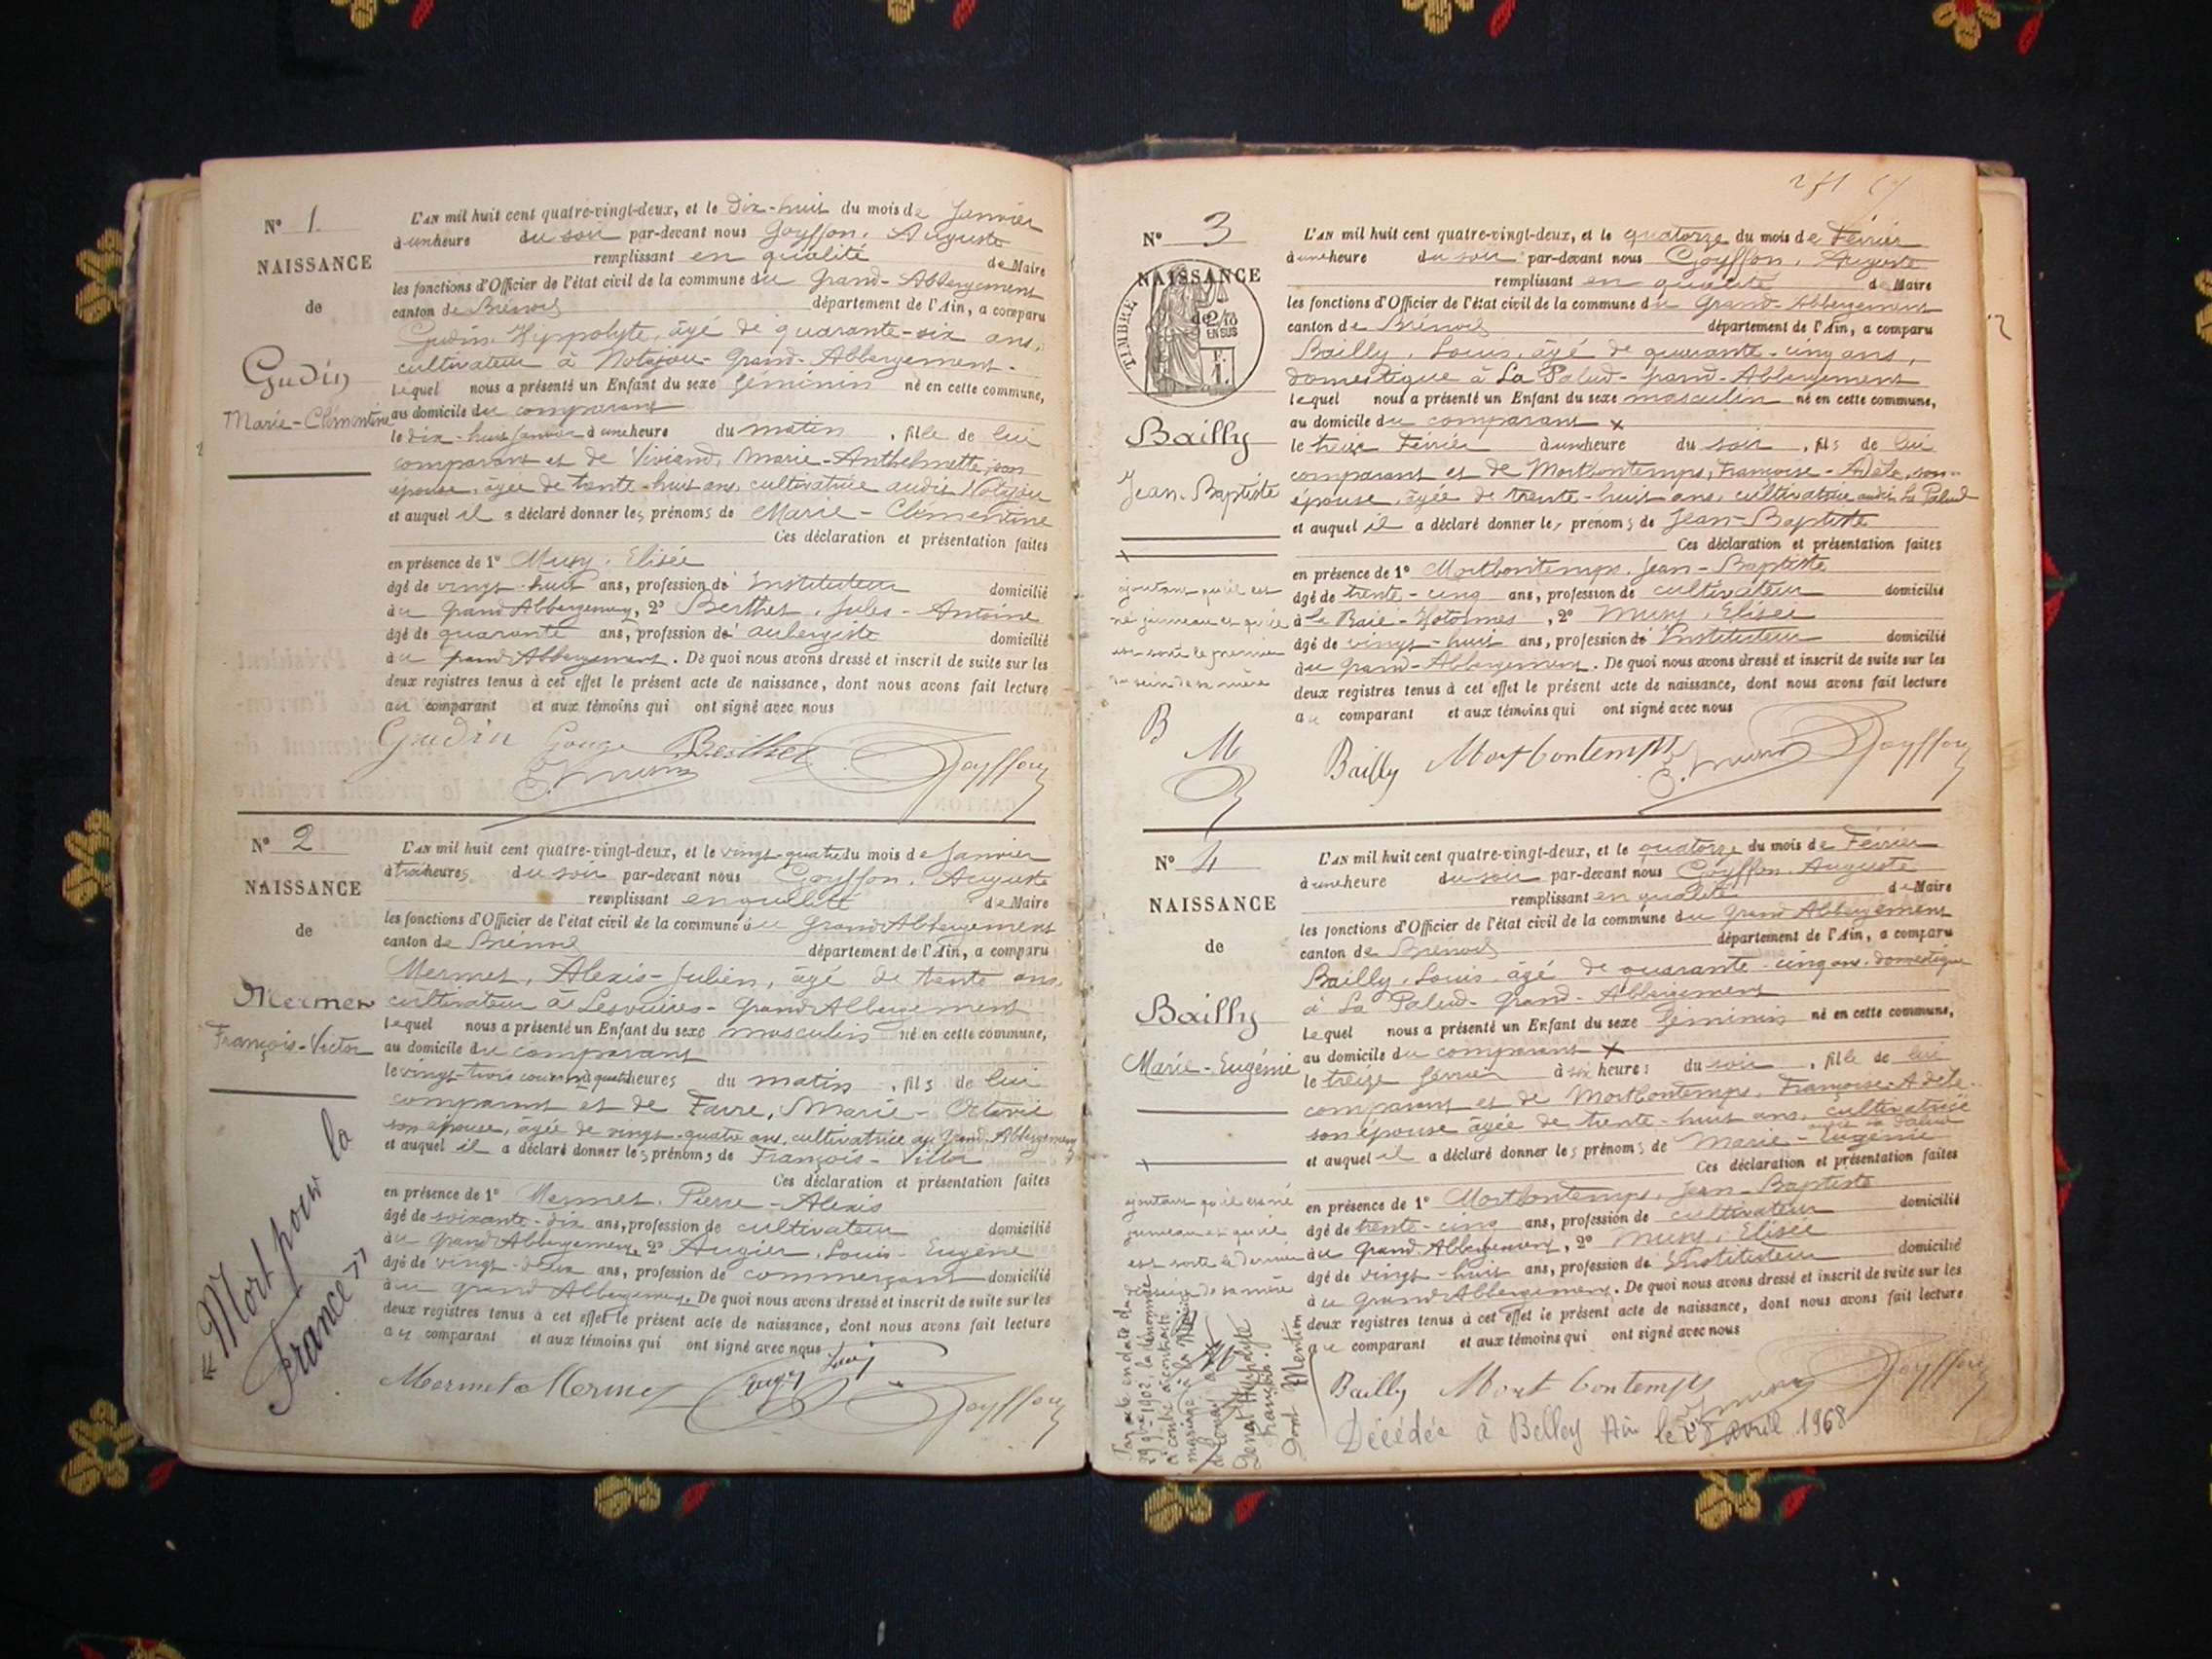 N° 1
NAISSANCE
de
Gudin
Marie-Clémentine
L'AN mil huit cent quatre-vingt-deux, et le dix-huit du mois de Janvier
à une heure du soir par-devant nous Goyffon, Auguste
remplissant en qualité de Maire
les fonctions d'Officier de l'état civil de la commune du Grand-Abbergement
canton de Brénod département de l'Ain, a comparu
Gudin, Hyppolyte, âgé de quarante-six ans,
cultivateur à Grand-Abbergement
lequel nous a présenté un Enfant du sexe féminin né en cette commune,
au domicile du comparant
le dix-huit Janvier à une heure du matin, fille de lui
comparant et de Viviand, Marie-Anthelmette, son
épouse, âgée de trente-huit ans, cultivatrice audit
et auquel il a déclaré donner les prénoms de Marie-Clémentine
Ces déclaration et présentation faites
en présence de 1° Muny, Elisée
âgé de vingt-huit ans, profession de Instituteur domicilié
au Grand Abbergement, 2° Berthet, Jules-Antoine
âgé de quarante ans, profession de aubergiste domicilié
au Grand Abbergement. De quoi nous avons dressé et inscrit de suite sur les
deux registres tenus à cet effet le présent acte de naissance, dont nous avons fait lecture
au comparant et aux témoins qui ont signé avec nous
Gudin Gouge Berthet Goyffon
N° 2
NAISSANCE
de
Mermet
François-Victor
« Mort pour la
France »
L'AN mil huit cent quatre-vingt-deux, et le vingt-quatre du mois de Janvier
à trois heures du soir par-devant nous Goyffon, Auguste
remplissant en qualité de Maire
les fonctions d'Officier de l'état civil de la commune du Grand Abbergement
canton de Brénod département de l'Ain, a comparu
Mermet, Alexis-Julien, âgé de trente ans,
cultivateur à Grand Abbergement
lequel nous a présenté un Enfant du sexe masculin né en cette commune,
au domicile du comparant
le vingt-trois courant à quatre heures du matin, fils de lui
comparant et de Favre, Marie-Octavie
son épouse, âgée de vingt-quatre ans, cultivatrice au Grand-Abbergement
et auquel il a déclaré donner les prénoms de François-Victor
Ces déclaration et présentation faites
en présence de 1° Mermet, Pierre-Alexis
âgé de soixante-dix ans, profession de cultivateur domicilié
au Grand Abbergement, 2° Augier, Louis-Eugène
âgé de vingt-deux ans, profession de commerçant domicilié
au Grand Abbergement. De quoi nous avons dressé et inscrit de suite sur les
deux registres tenus à cet effet le présent acte de naissance, dont nous avons fait lecture
au comparant et aux témoins qui ont signé avec nous
Mermet Mermet Goyffon
N° 3
NAISSANCE
de
TIMBRE
2/10
EN SUS
Bailly
Jean-Baptiste
ajoutant qu'il est
né jumeau et qu'il
est sorti le premier
du sein de sa mère
B
M
L'AN mil huit cent quatre-vingt-deux, et le quatorze du mois de Février
à une heure du soir par-devant nous Goyffon, Auguste
remplissant en qualité de Maire
les fonctions d'Officier de l'état civil de la commune du Grand-Abbergement
canton de Brénod département de l'Ain, a comparu
Bailly, Louis, âgé de quarante-cinq ans,
domestique à La Palud-Grand-Abbergement
lequel nous a présenté un Enfant du sexe masculin né en cette commune,
au domicile du comparant x
le treize Février à une heure du soir, fils de lui
comparant et de Mortbontemps, Françoise-Adèle, son
épouse, âgée de trente-huit ans, cultivatrice audit La Palud
et auquel il a déclaré donner les prénoms de Jean-Baptiste
Ces déclaration et présentation faites
en présence de 1° Mortbontemps, Jean-Baptiste
âgé de trente-cinq ans, profession de cultivateur domicilié
à Hotonnes, 2° Muny, Elisée
âgé de vingt-huit ans, profession de Instituteur domicilié
au Grand-Abbergement. De quoi nous avons dressé et inscrit de suite sur les
deux registres tenus à cet effet le présent acte de naissance, dont nous avons fait lecture
au comparant et aux témoins qui ont signé avec nous
Bailly Mortbontemps Goyffon
N° 4
NAISSANCE
de
Bailly
Marie-Eugénie
ajoutant qu'il est né
jumeau et qu'il
est sorti le dernier
du sein de sa mère
Par acte en date du
1902 la dénommée
a contracté
mariage à la Mairie
dont Mention
L'AN mil huit cent quatre-vingt-deux, et le quatorze du mois de Février
à une heure du soir par-devant nous Goyffon, Auguste
remplissant en qualité de Maire
les fonctions d'Officier de l'état civil de la commune du Grand Abbergement
canton de Brénod département de l'Ain, a comparu
Bailly, Louis, âgé de quarante-cinq ans, domestique
à La Palud-Grand-Abbergement
lequel nous a présenté un Enfant du sexe féminin né en cette commune,
au domicile du comparant x
le treize Février à six heures du soir, fille de lui
comparant et de Mortbontemps, Françoise-Adèle
son épouse âgée de trente-huit ans, cultivatrice
audit La Palud
et auquel il a déclaré donner les prénoms de Marie-Eugénie
Ces déclaration et présentation faites
en présence de 1° Mortbontemps, Jean-Baptiste
âgé de trente-cinq ans, profession de cultivateur domicilié
au Grand Abbergement, 2° Muny, Elisée
âgé de vingt-huit ans, profession de Instituteur domicilié
au Grand Abbergement. De quoi nous avons dressé et inscrit de suite sur les
deux registres tenus à cet effet le présent acte de naissance, dont nous avons fait lecture
au comparant et aux témoins qui ont signé avec nous
Bailly Mortbontemps Goyffon
Décédée à Belley Ain le avril 1968